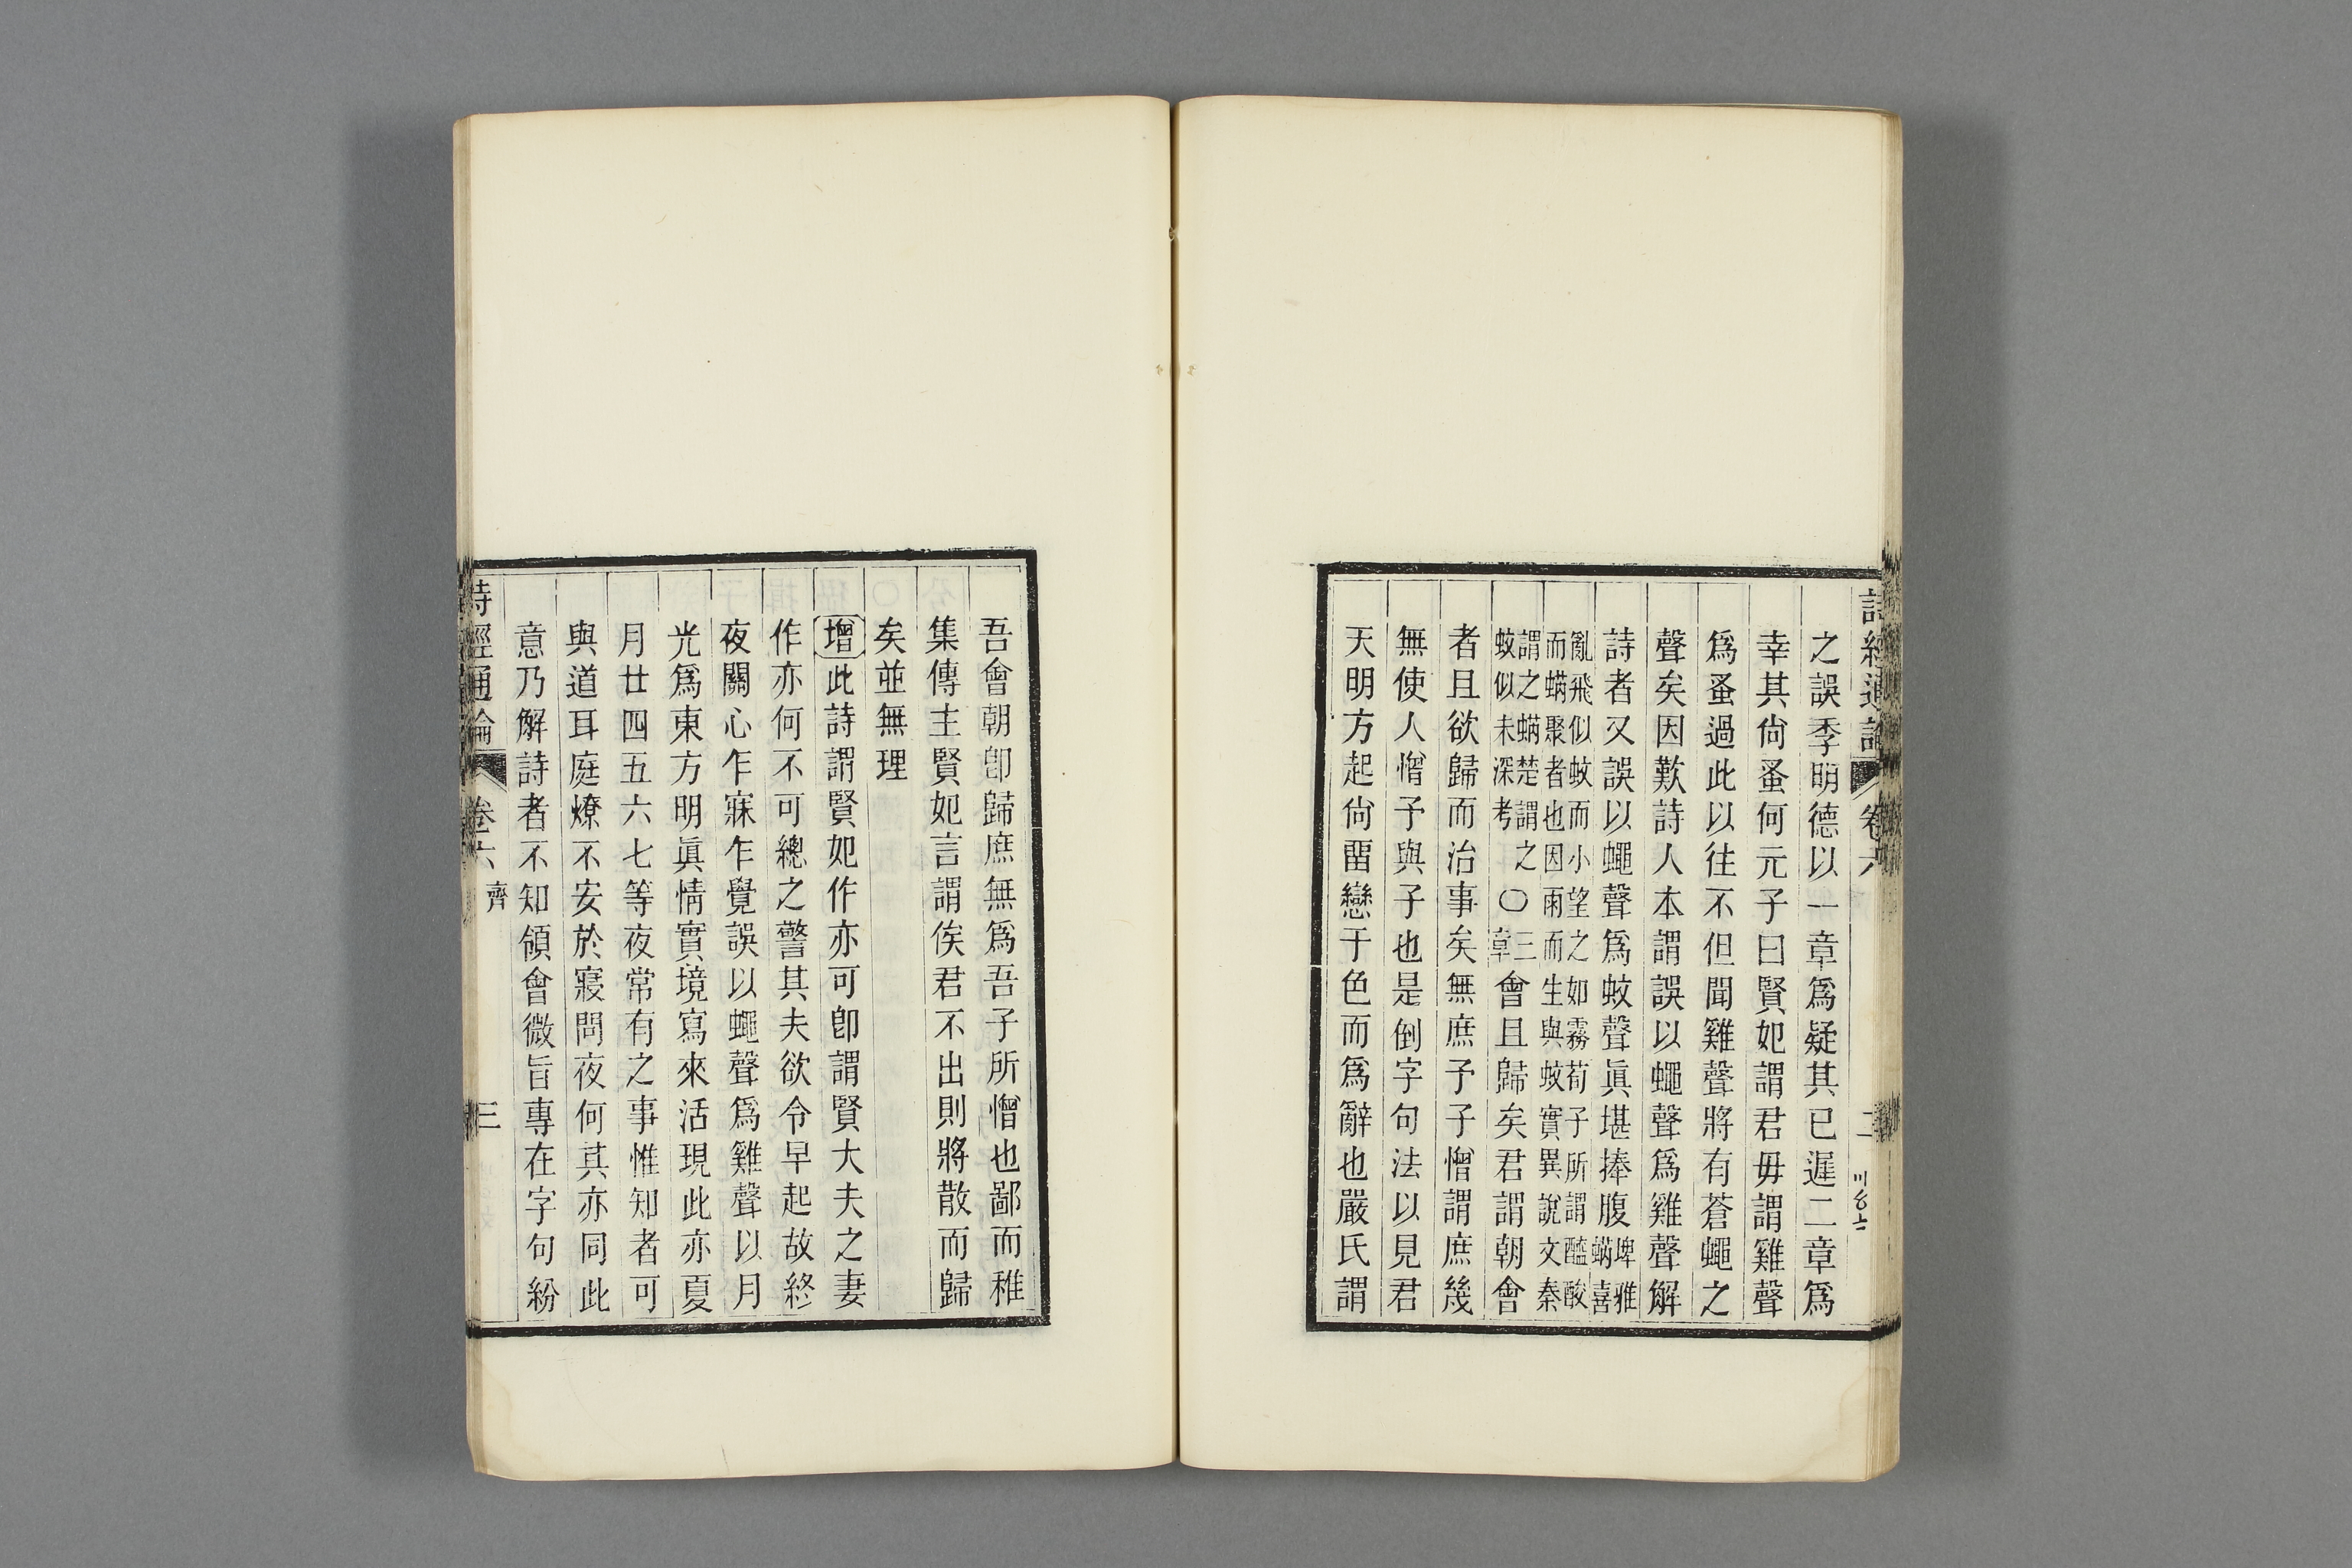 詩經通論 卷六 二
之誤季明德以一章爲疑其已遲二章爲
幸其尙蚤何元子曰賢妃謂君毋謂雞聲
爲蚤過此以往不但聞雞聲將有蒼蠅之
聲矣因歎詩人本謂誤以蠅聲爲雞聲解
詩者又誤以蠅聲爲蚊聲眞堪捧腹埤雅
蠨喜
亂飛似蚊而小望之如霧荀子所謂醯酸
而蠨聚者也因雨而生與蚊實異說文秦
謂之蠨楚謂之
蚊似未深考〇三章會且歸矣君謂朝會
者且欲歸而治事矣無庶予子憎謂庶幾
無使人憎予與子也是倒字句法以見君
天明方起尙畱戀于色而爲辭也嚴氏謂
吾會朝卽歸庶無爲吾子所憎也鄙而稚
集傳主賢妃言謂俟君不出則將散而歸
矣並無理
增此詩謂賢妃作亦可卽謂賢大夫之妻
作亦何不可總之警其夫欲令早起故終
夜關心乍寐乍覺誤以蠅聲爲雞聲以月
光爲東方明眞情實境寫來活現此亦夏
月廿四五六七等夜常有之事惟知者可
與道耳庭燎不安於寢問夜何其亦同此
意乃解詩者不知領會微旨專在字句紛
詩經通論 卷六 齊 三